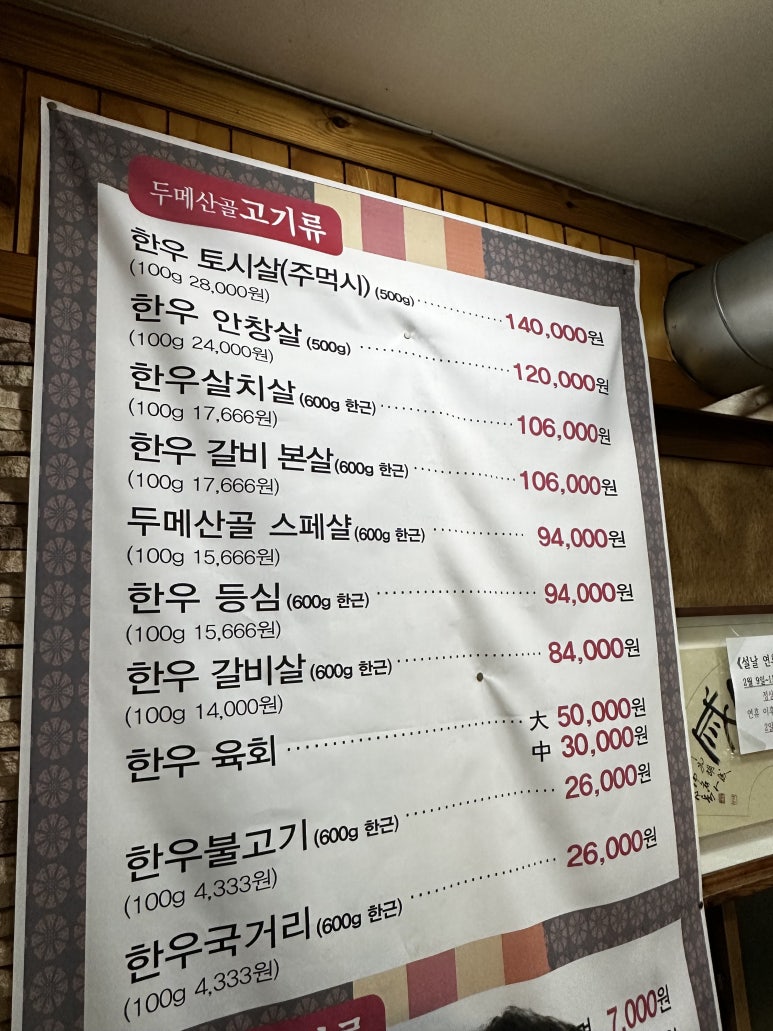 두메산골고기류
한우 토시살(주먹시) (500g) 140,000원
(100g 28,000원)
한우 안창살 (500g) 120,000원
(100g 24,000원)
한우살치살 (600g 한근) 106,000원
(100g 17,666원)
한우 갈비 본살 (600g 한근) 106,000원
(100g 17,666원)
두메산골 스페샬 (600g 한근) 94,000원
(100g 15,666원)
한우 등심 (600g 한근) 94,000원
(100g 15,666원)
한우 갈비살 (600g 한근) 84,000원
(100g 14,000원)
한우 육회 大 50,000원
中 30,000원
한우불고기 (600g 한근) 26,000원
(100g 4,333원)
한우국거리 (600g 한근) 26,000원
(100g 4,333원)
7,000원
《설날 연
2월 9일